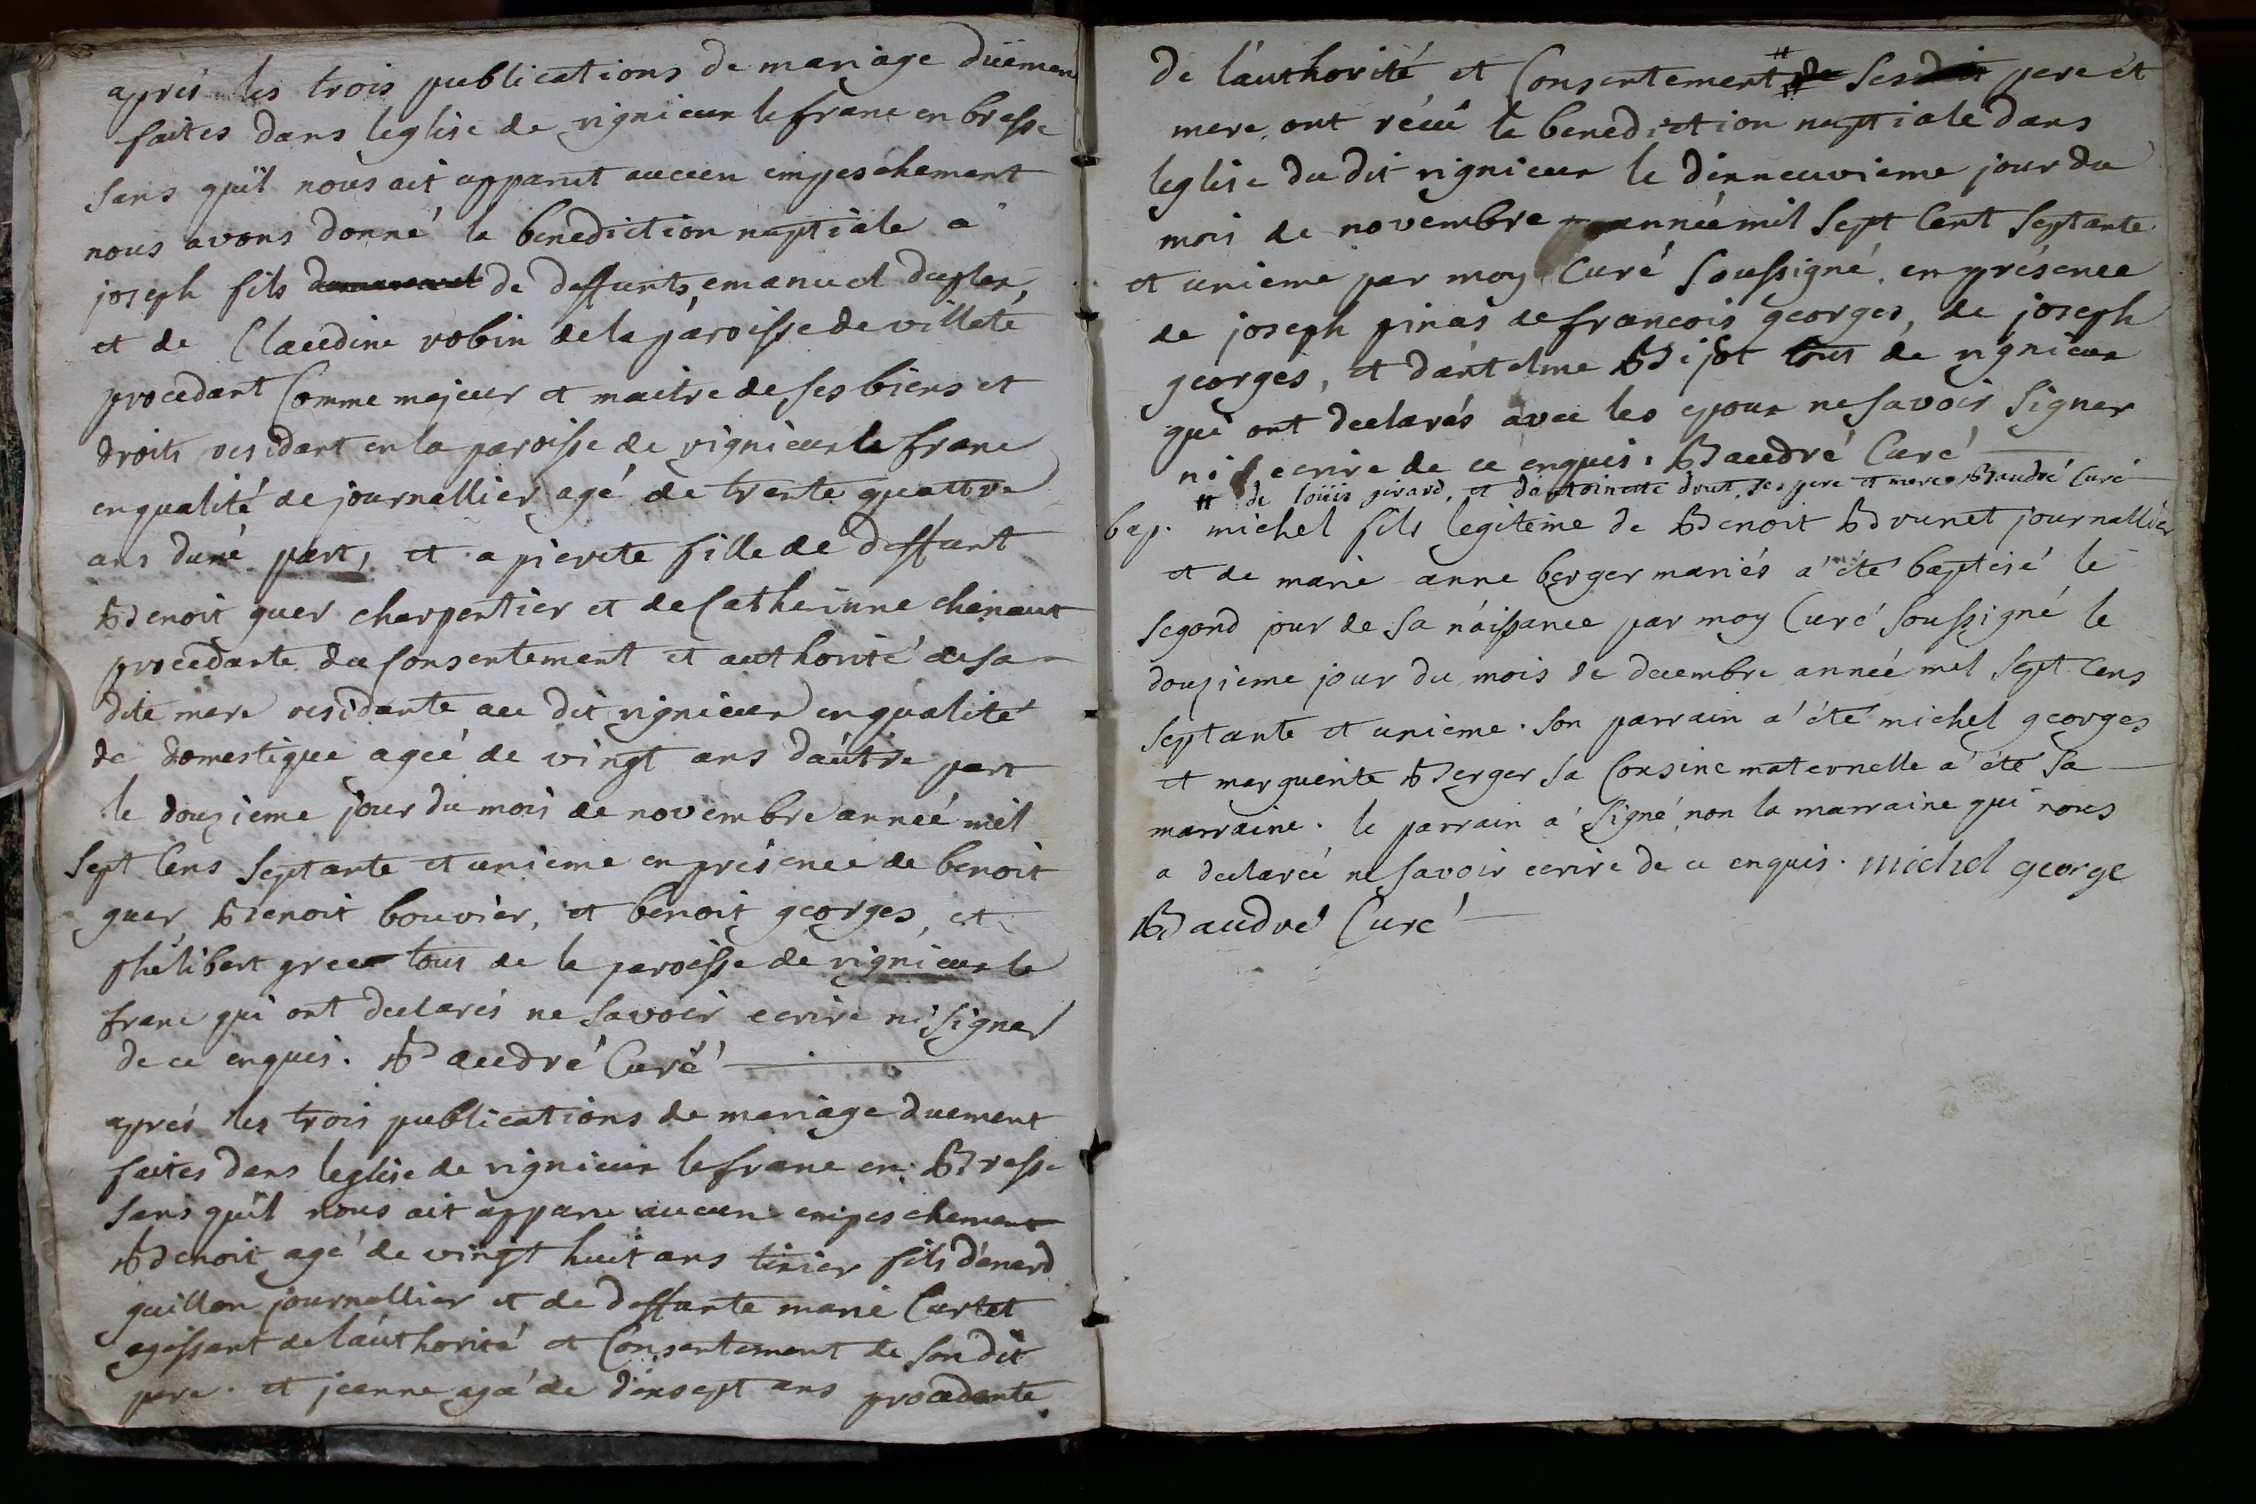 aprés les trois publications de mariage düemen
faites dans leglise de rignieux le franc en bresse
sans quïl nous ait apparut aucun empeschement
nous avons donné la benediction nuptiale a
joseph fils de deffunts emanuel duplex,
et de Claudine robin de la paroisse de villete
procedant Comme majeur et maitre de ses biens et
droits residant en la paroisse de rignieux le franc
en qualité de journallier agé de trente quattre
ans duné part, et a pierrete fille de deffunt
Benoit guer charpentier et de Catherinne chanaut
procedante du Consentement et authorité de sa
dite mere residante au dit rignieux en qualité
de domestique ageé de vingt ans dáutre part
le douzieme jour du mois de novembre anneé mil
sept Cens septante et unieme en présence de benoit
guer, Benoit bouvier, et benoit georges, et
philibert greu tous de la paroisse de rignieux le
franc qui ont declarés ne savoir ecrire ni signer
de ce enquis. Baudré Curé
aprés les trois publications de mariage duement
faites dans leglise de rignieux le franc en Bresse
sans quïl nous ait apparu aucun empeschement
Benoit agé de vingt huit ans tixier fils dénard
guillon journallier et de deffunte marie Curtet
agissant de láuthorité et Consentement de son dit
pere. et jeanne ageé de dixsept ans procedante
de láuthorité et Consentement # ses pere et
mere, ont réçu la benediction nuptiale dans
leglise du dit rignieux le dixneuvieme jour du
mois de novembre anneé mil sept Cent septante
et unieme par moy Curé soussigné en présence
de joseph pinas de francois georges, de joseph
georges, et dántelme Bijot tous de rignieux
qui ont declarés avec les epoux ne savoir signer
ni ecrire de ce enquis. Baudré Curé
# de loüis girard, et dántoinette drut, ses pere et mere Baudré Curé
bap. michel fils legiteime de Benoit Brunet journallier
et de marie anne berger mariés a été baptisé le
segond jour de sa náissance par moy Curé soussigné le
douzieme jour du mois de decembre anneé mil sept Cens
septante et unieme. son parrain a été michel georges
et marguerite Berger sa Cousine maternelle a été sa
marraine. le parrain a signé non la marraine qui nous
a declareé ne savoir ecrire de ce enquis. michel george
Baudré Curé